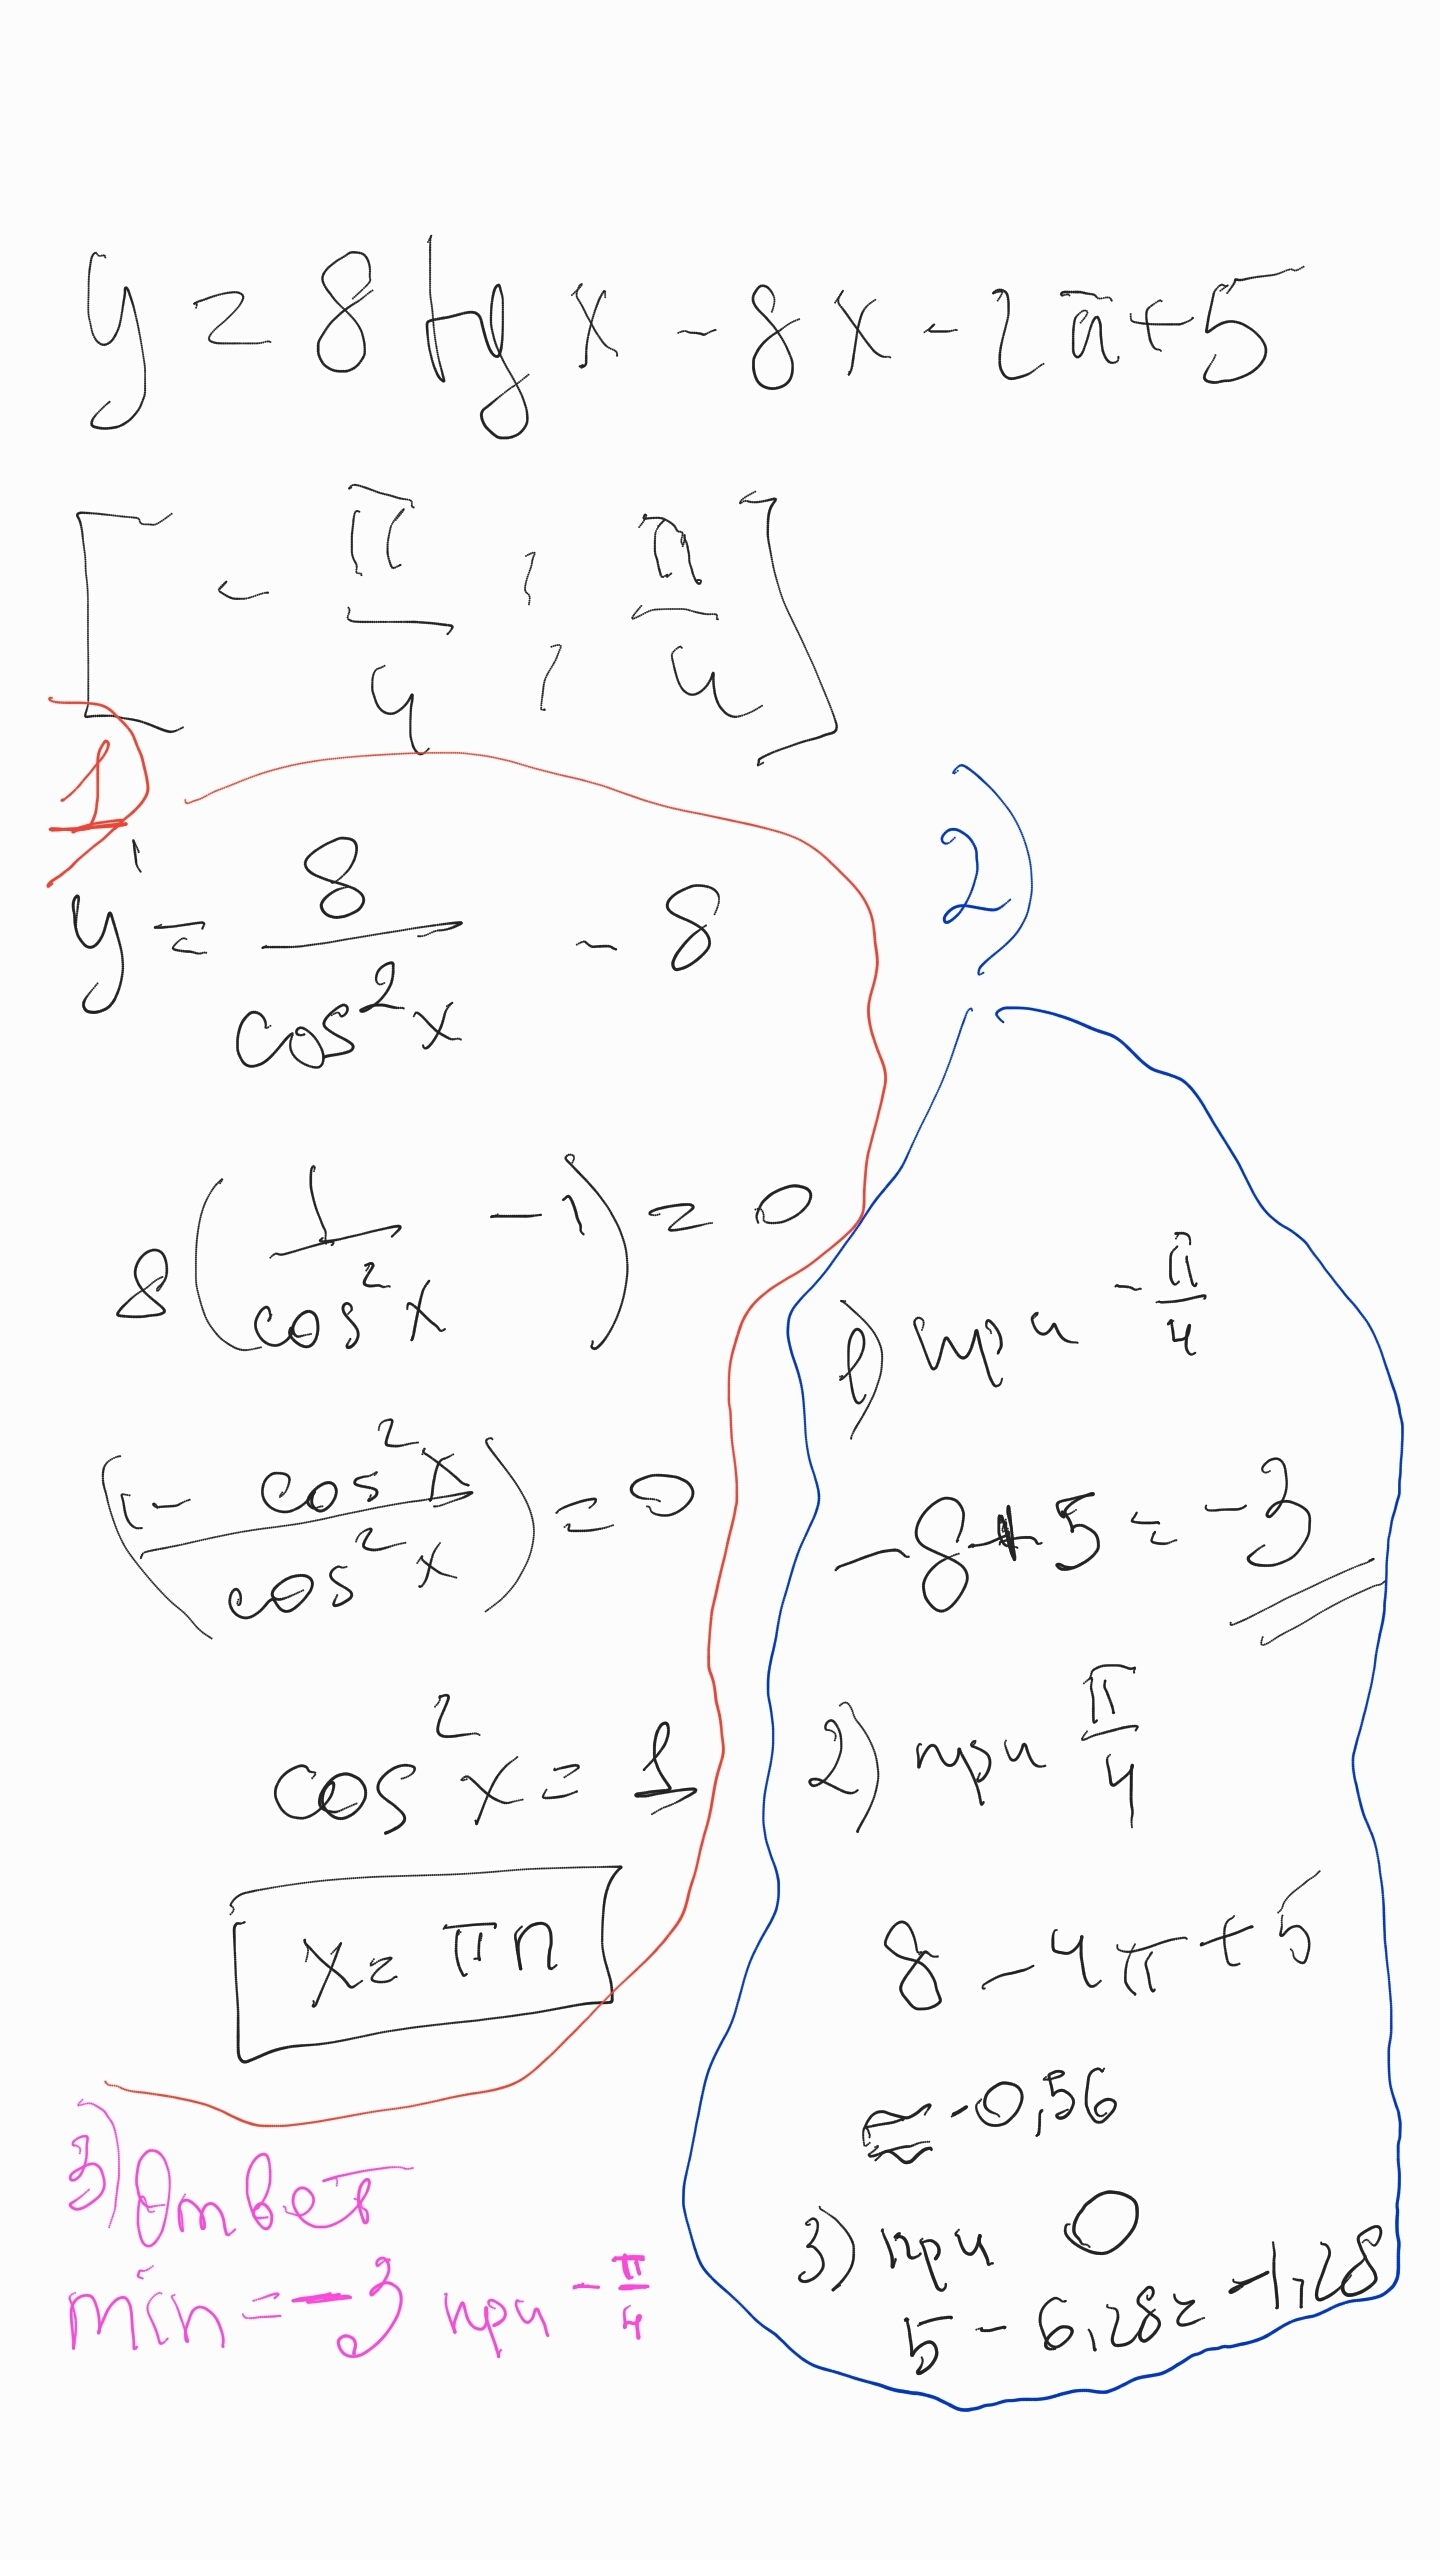 y = 8 tg x - 8x - 2π + 5
[ - π/4 ; π/4 ]
1)
y' = 8/cos²x - 8
8(1/cos²x - 1) = 0
(1 - cos²x/cos²x) = 0
cos²x = 1
x = πn
2)
1) при - π/4
-8 + 5 = -3
2) при π/4
8 - 4π + 5
≈ -0,56
3) при 0
5 - 6,28 = -1,28
3) Ответ
min = -3 при - π/4